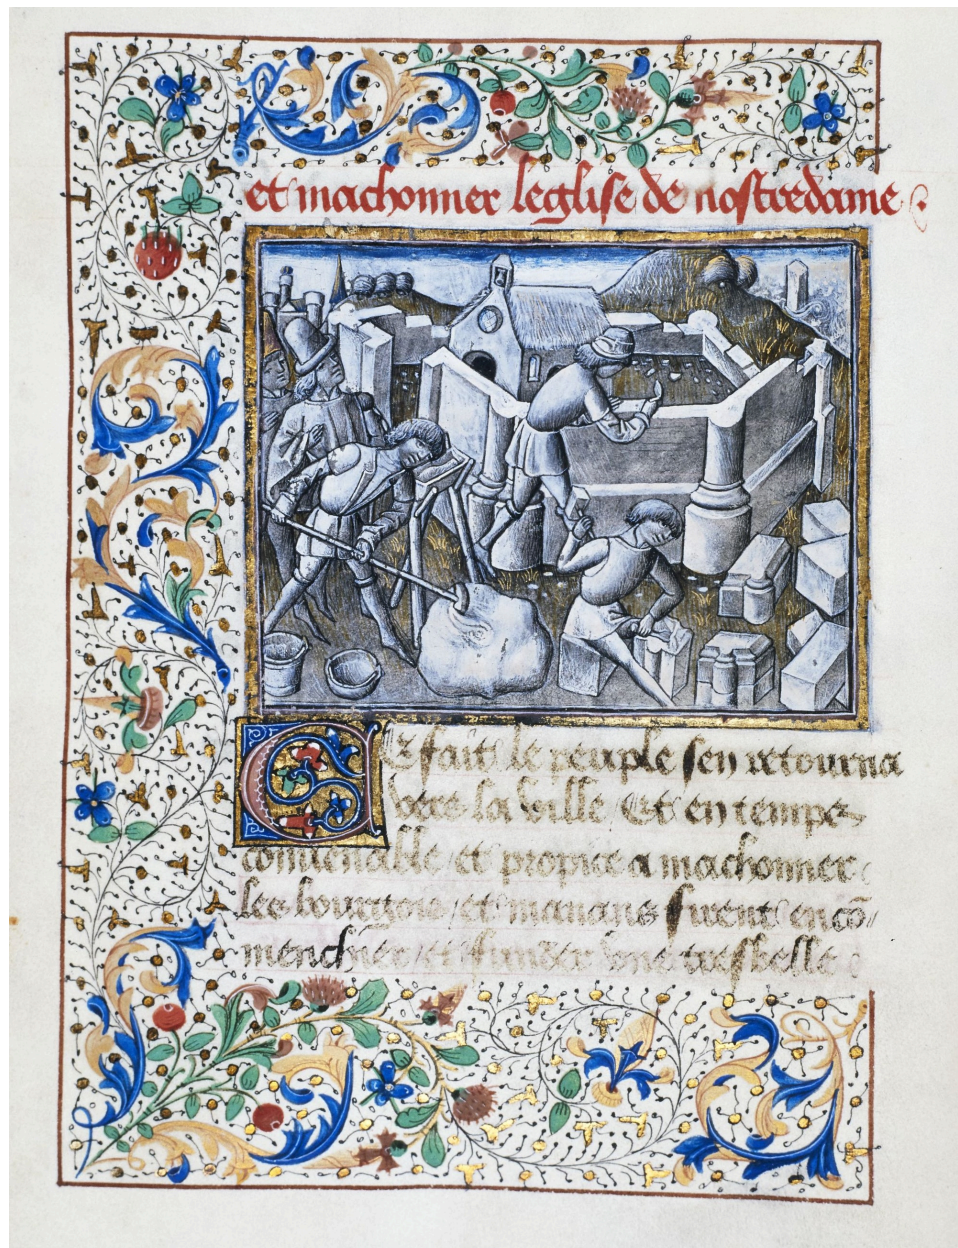 et machonner leglise de nostredame
Ce fait le peuple sen retourna
vers la ville Et en temps
conuenable et propice a machonner
les bourgois et manans firent encō
menchier et funder vne tresbelle